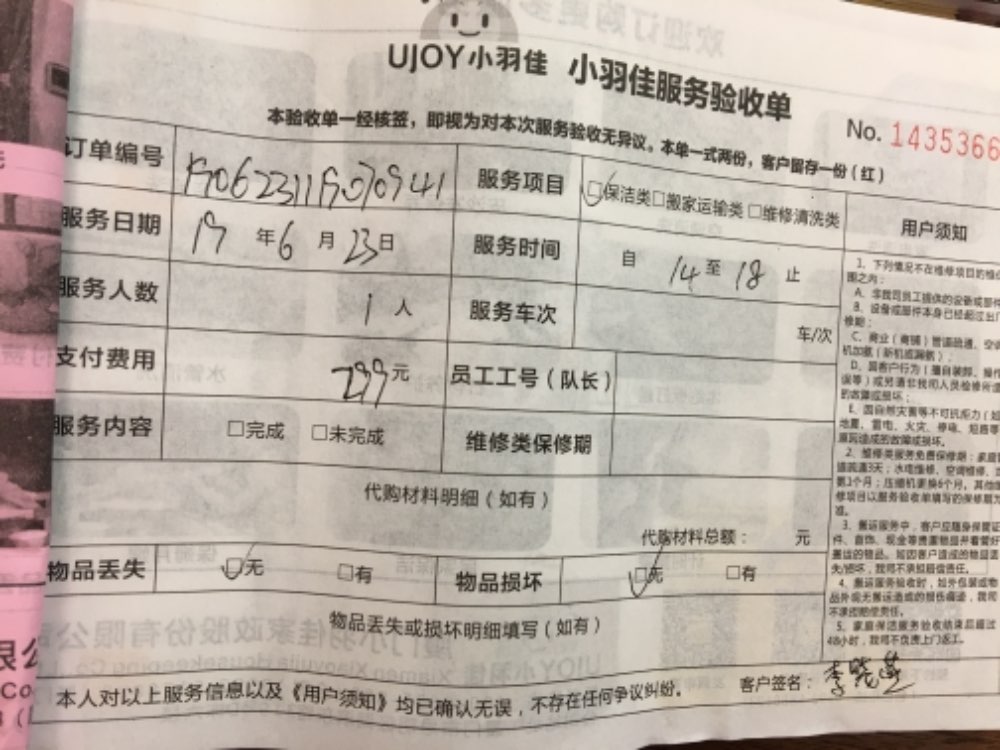 UJOY小羽佳 小羽佳服务验收单
本验收单一经核签，即视为对本次服务验收无异议。本单一式两份，客户留存一份（红）
No. 1435366
订单编号 服务项目 保洁类 □搬家运输类 □维修清洗类
服务日期 19年6月23日 服务时间 自14至18止
服务人数 1人 服务车次 车/次
支付费用 299元 员工工号（队长）
服务内容 □完成 □未完成 维修类保修期
代购材料明细（如有）
代购材料总额： 元
物品丢失 无 □有 物品损坏 无 □有
物品丢失或损坏明细填写（如有）
本人对以上服务信息以及《用户须知》均已确认无误，不存在任何争议纠纷。 客户签名：
用户须知
1、下列情况不在维修项目的维
围之内：
A、非我司员工提供的设备或部件
B、设备或部件本身已经超过出厂
修期；
C、商业（商铺）管道疏通、空调
机加氨（新机或漏氨）；
D、因客户行为（擅自装卸、操作
误等）或另请非我司人员检修所造
的故障或损坏；
E、因自然灾害等不可抗拒力（如
地震、雷电、火灾、停电、短路等
原因造成的故障或损坏。
2、维修类服务免费保修期：家庭管
道疏通3天；水电维修、空调维修、
氨1个月；压缩机更换6个月，其他
修项目以服务验收单填写的保修期为
准。
3、搬运服务中，客户应随身保管证
件、首饰、现金等贵重物品并看管好
搬运的物品。如因客户造成的物品丢
失/损坏，我司不承担赔偿责任。
4、搬运服务验收时，如外包装或物
品外观无搬运造成的损伤痕迹，我司
不承担赔偿责任。
5、家庭保洁服务验收结束后超过
48小时，我司不负责上门返工。